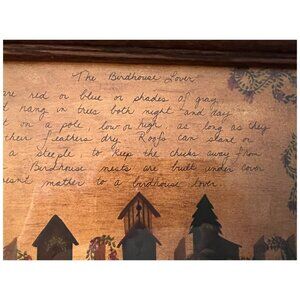 The Birdhouse Lover
are red or blue or shades of gray
hang in trees both night and day
on a pole, low or high, as long as they
their feathers dry. Roofs can slant or
a steeple, to keep the chicks away from
Birdhouse nests are built under cover
matter to a birdhouse lover.